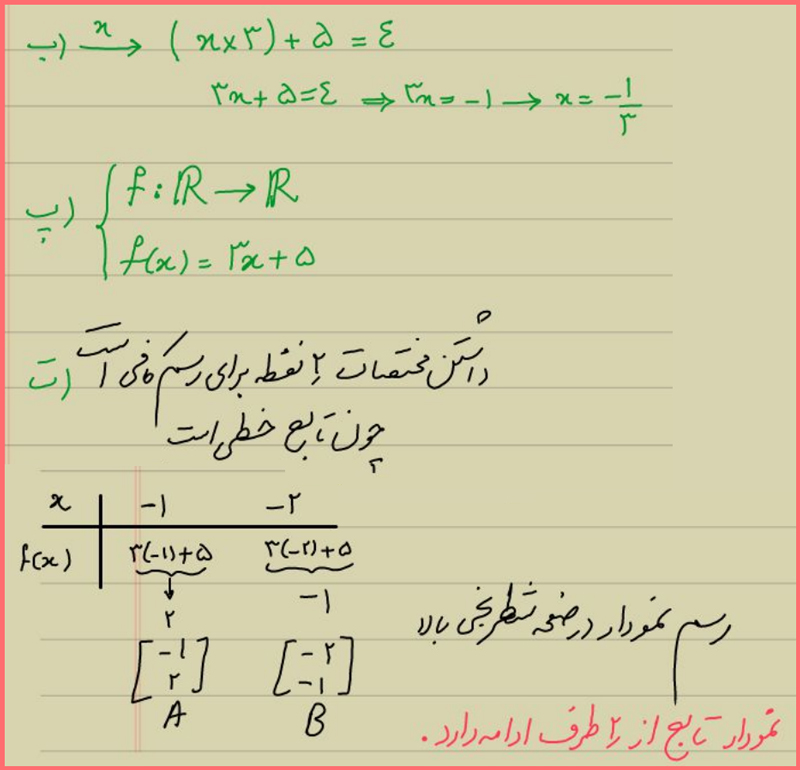 ب) x → (x×۳)+۵=۴
۳x+۵=۴ ⇒ ۳x=-۱ → x=-۱/۳
پ) { f: ℝ → ℝ
f(x)=۳x+۵
ت) داشتن مختصات ۲ نقطه برای رسم کافی است
چون تابع خطی است
x | -۱ -۲
f(x) | ۳(-۱)+۵ ۳(-۲)+۵
۲ -۱
[-۱ ۲] [-۲ -۱]
A B
رسم نمودار در صفحه شطرنجی بالا
نمودار تابع از ۲ طرف ادامه دارد.